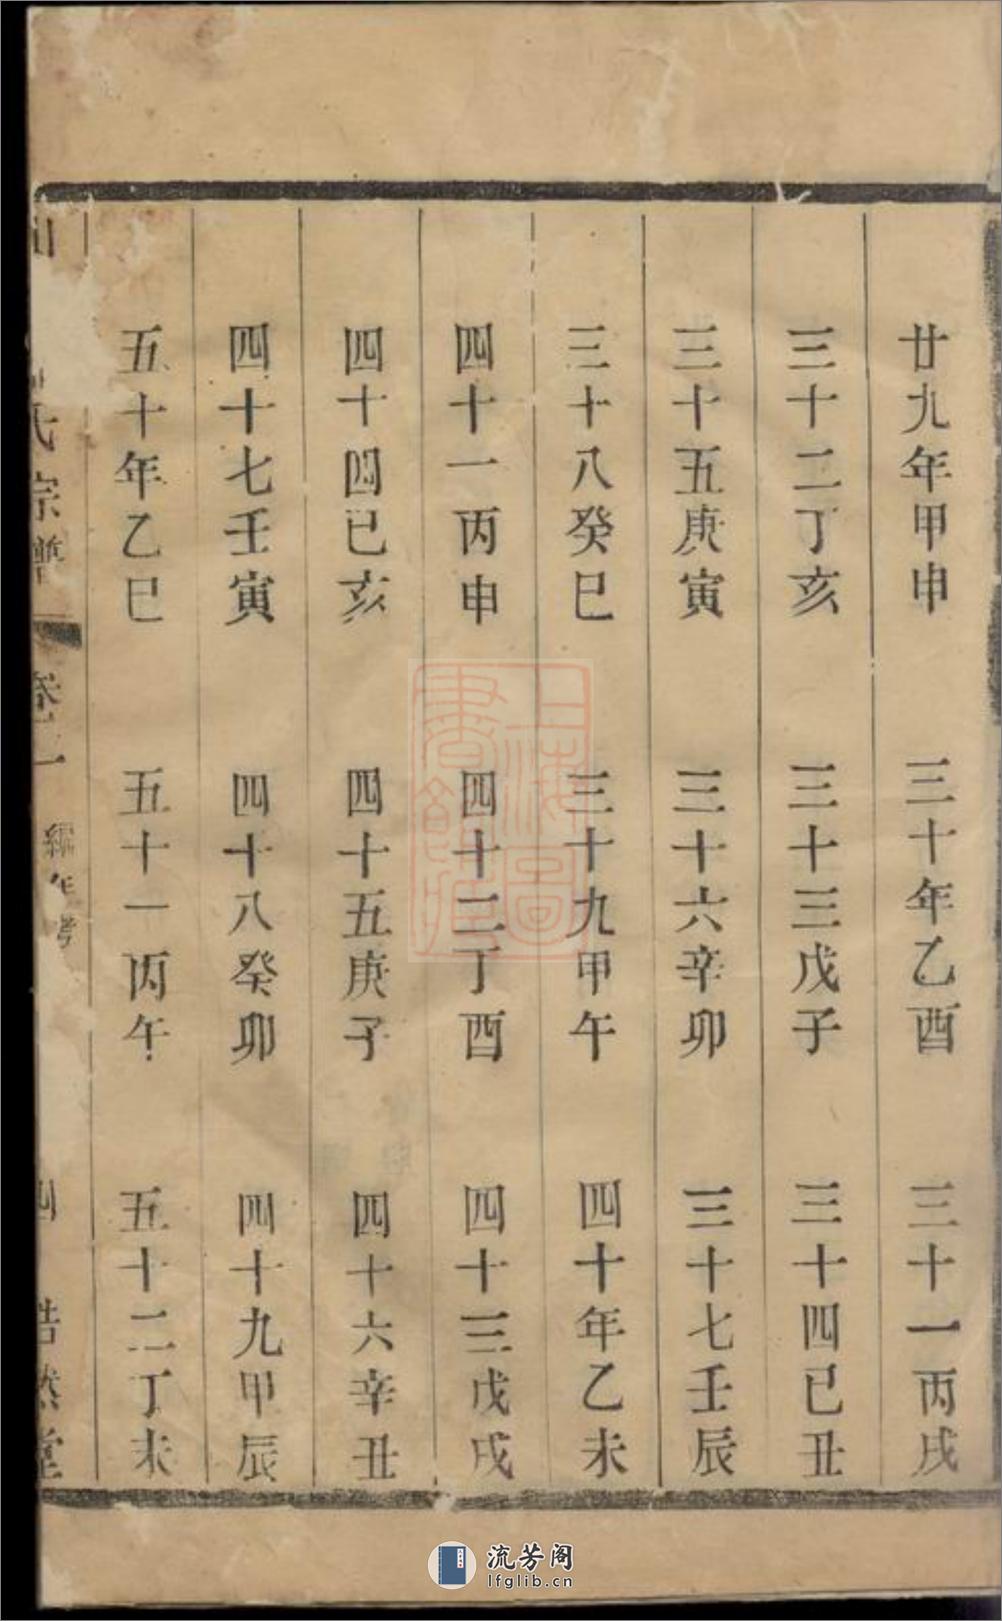 廿九年甲申　三十年乙酉　三十一丙戌
三十二丁亥　三十三戊子　三十四已丑
三十五庚寅　三十六辛卯　三十七壬辰
三十八癸巳　三十九甲午　四十年乙未
四十一丙申　四十二丁酉　四十三戊戌
四十四已亥　四十五庚子　四十六辛丑
四十七壬寅　四十八癸卯　四十九甲辰
五十年乙巳　五十一丙午　五十二丁未
氏宗譜　卷一　編年考　四　浩然堂
上海圖書館藏
流芳阁
lfglib.cn